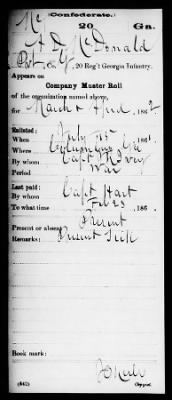 Mc
Confederate.
20 Ga.
A. D. McDonald
Pvt, Co. G, 20 Reg't Georgia Infantry.
Appears on
Company Muster Roll
of the organization named above,
for March & April, 186 2
Enlisted:
When July 15, 186 1.
Where Columbus Ga
By whom Capt
Period War
Last paid:
By whom Capt Hart
To what time Feb 28, 186 .
Present or absent Present
Remarks: Present Sick
Book mark:
(642)
Copyist.